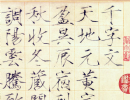 千字文
天地元黃宇
盈昃辰宿列
秋收冬藏閏
調陽雲騰致